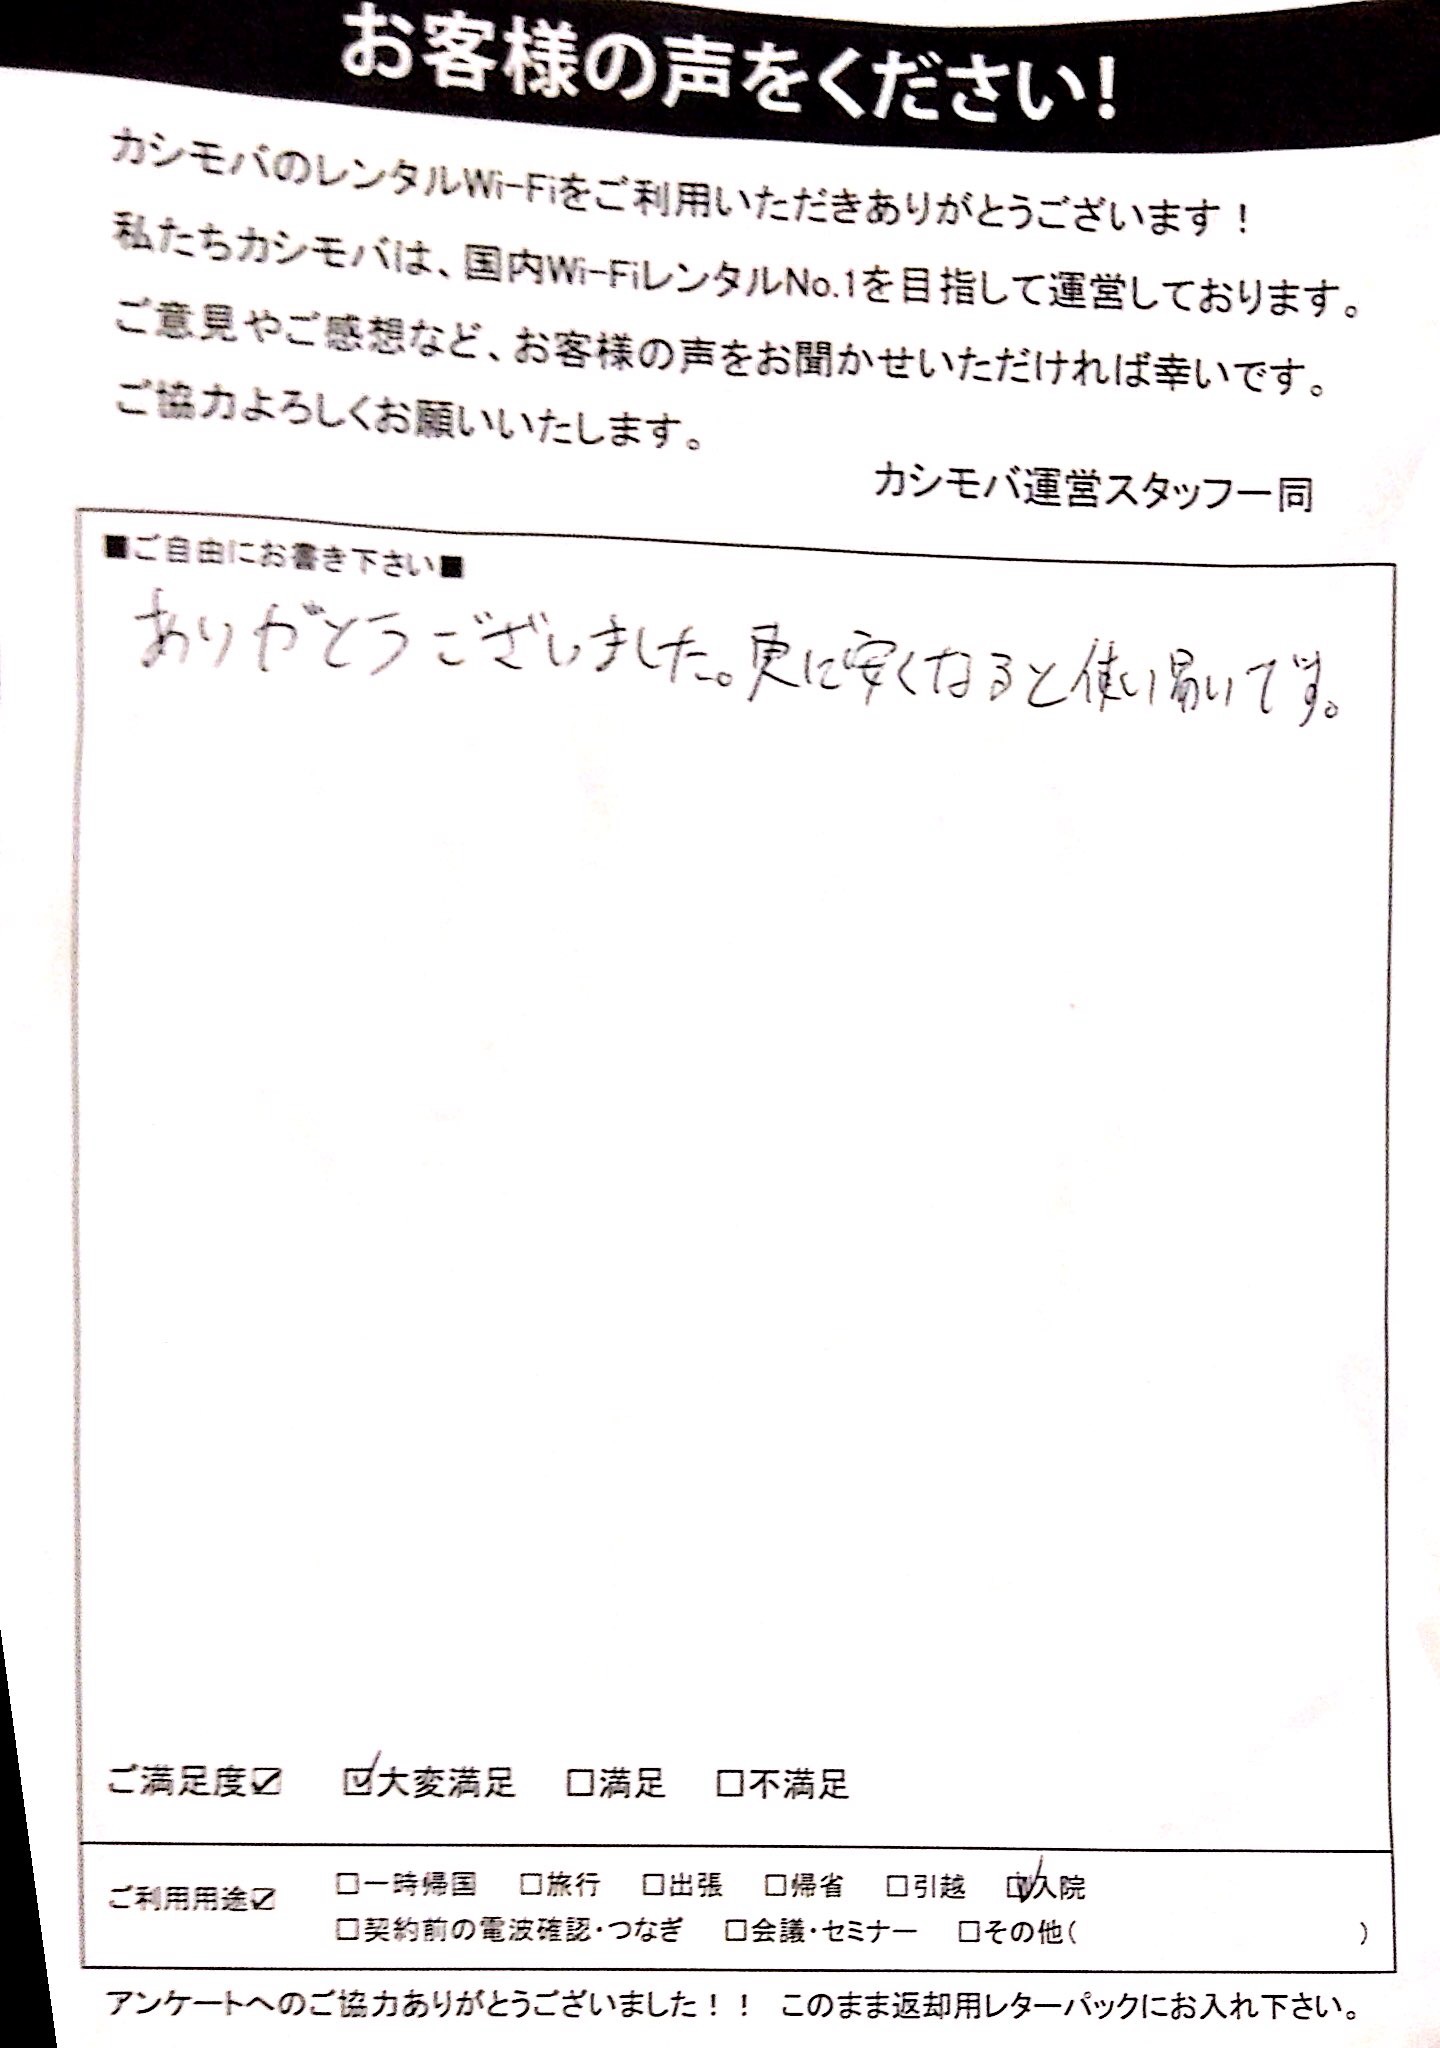 お客様の声をください!
カシモバのレンタルWi-Fiをご利用いただきありがとうございます！
私たちカシモバは、国内Wi-FiレンタルNo.1を目指して運営しております。
ご意見やご感想など、お客様の声をお聞かせいただければ幸いです。
ご協力よろしくお願いいたします。
カシモバ運営スタッフ一同
■ご自由にお書き下さい■
ありがとうございました。更に安くなると使い易いです。
ご満足度☑ ☑大変満足 □満足 □不満足
ご利用用途☑ □一時帰国 □旅行 □出張 □帰省 □引越 ☑入院
□契約前の電波確認・つなぎ □会議・セミナー □その他( )
アンケートへのご協力ありがとうございました！！ このまま返却用レターパックにお入れ下さい。